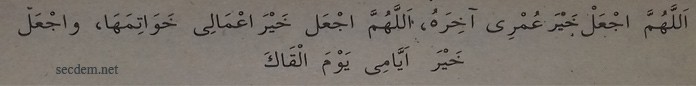 اَللَّهُمَّ اجْعَلْ خَيْرَ عُمْرِى آخِرَهُ، اَللَّهُمَّ اجْعَل خَيْرَ اعْمَالِى خَوَاتِمَهَا، واجْعَلْ
خَيْرَ اَيَّامِى يَوْمَ الْقَاكَ
secdem.net